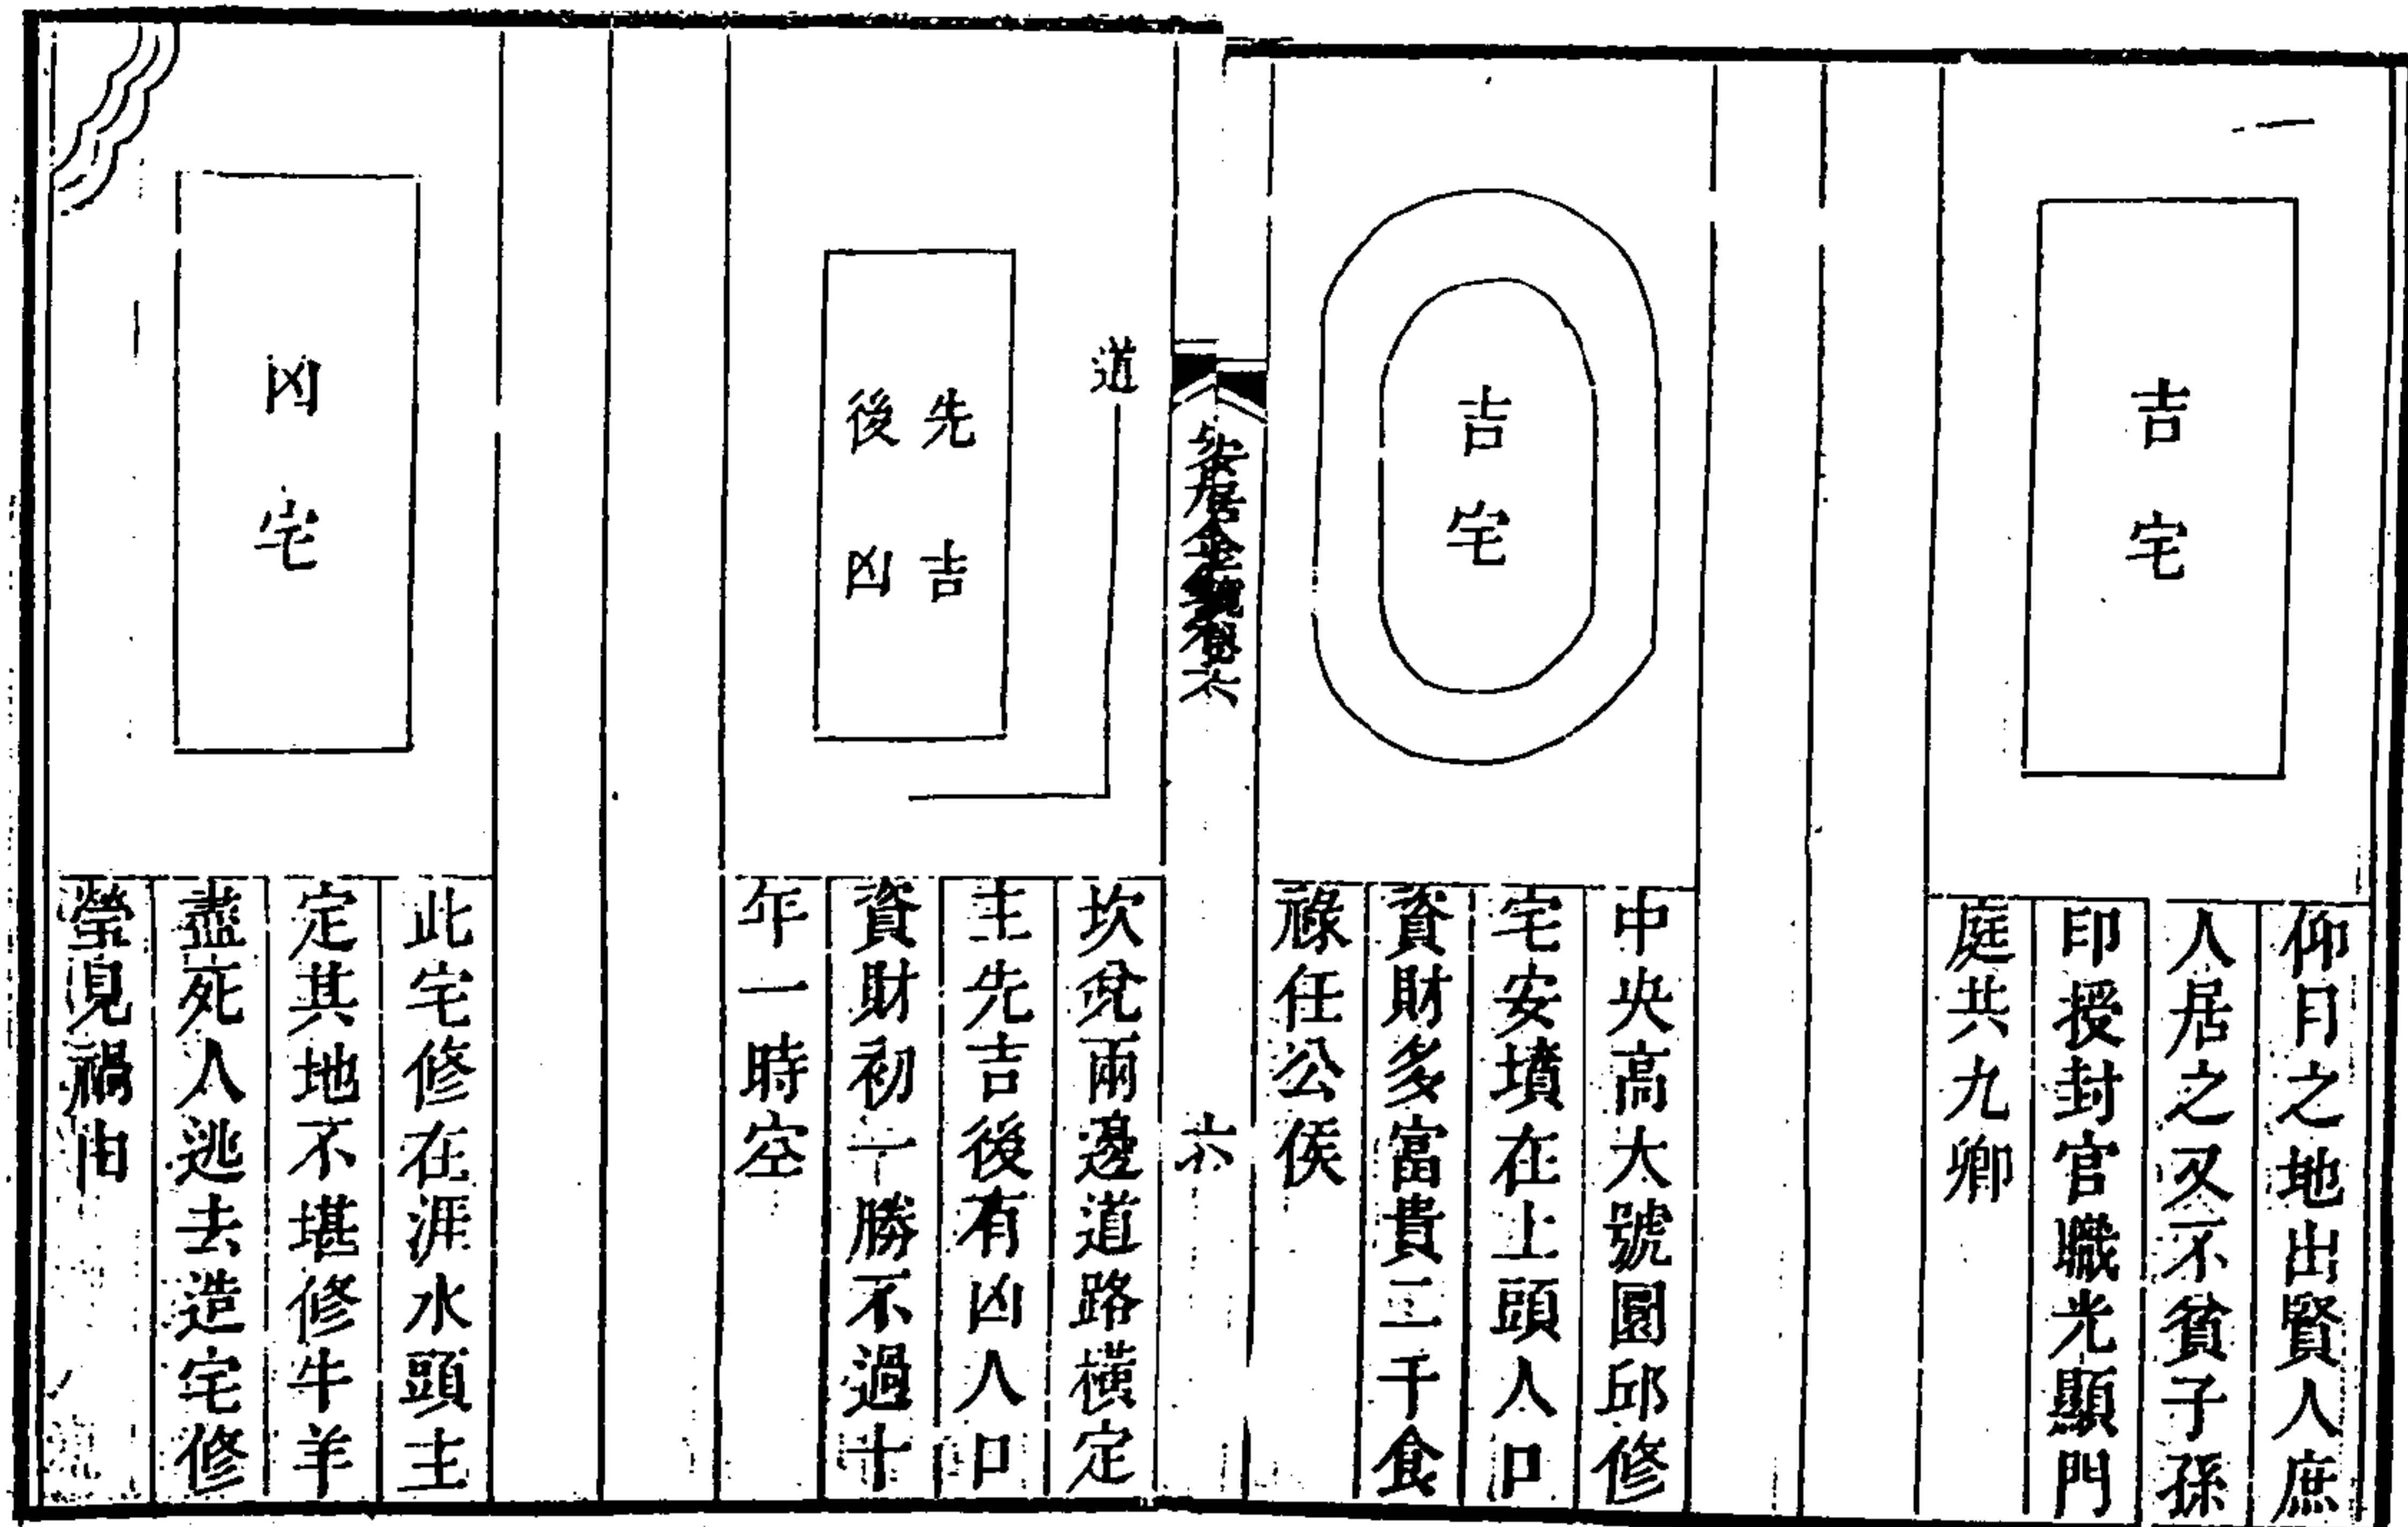 吉宅
仰月之地出賢人庶
人居之又不貧子孫
印授封官職光顯門
庭共九卿
吉宅
中央高大號圓邱修
宅安墳在上頭人口
資財多富貴二千食
祿任公侯
安居金鏡卷六
六
道
先吉
後凶
坎兌兩邊道路橫定
主先吉後有凶人口
資財初一勝不過十
年一時空
凶宅
此宅修在涯水頭主
定其地不堪修牛羊
盡死人逃去造宅修
塋見禍由